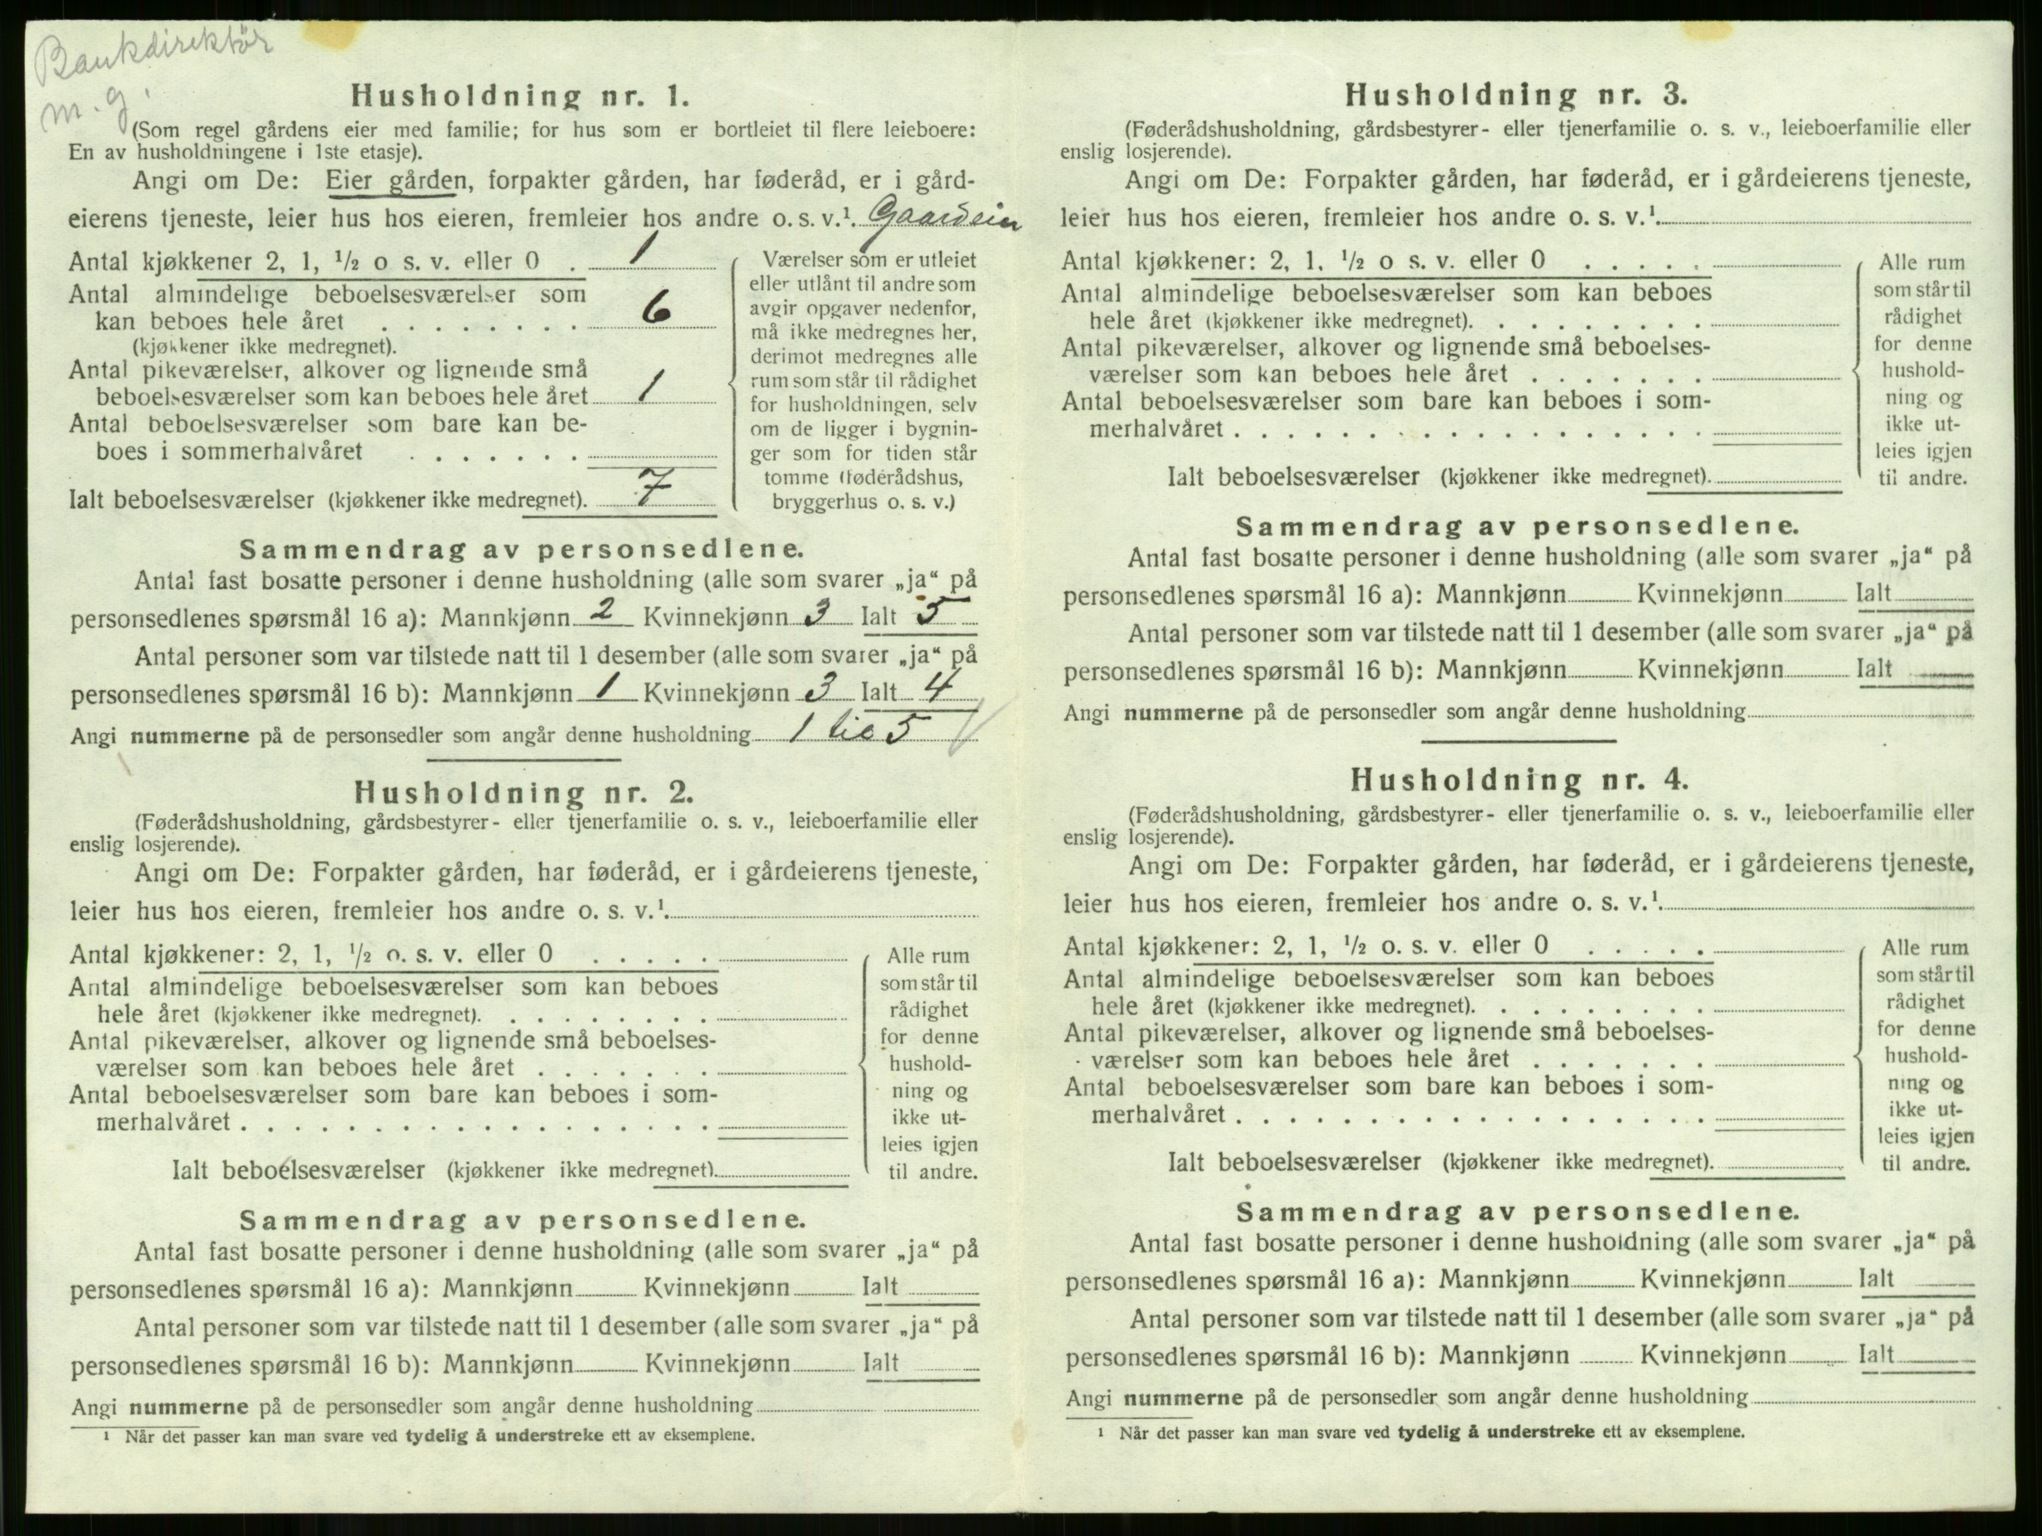 Bankdirektør
m. g.
Husholdning nr. 1.
(Som regel gårdens eier med familie; for hus som er bortleiet til flere leieboere:
En av husholdningene i 1ste etasje).
Angi om De: Eier gården, forpakter gården, har føderåd, er i gård-
eierens tjeneste, leier hus hos eieren, fremleier hos andre o. s. v.¹. Gaardeier
Antal kjøkkener 2, 1, ½ o s. v. eller 0 . 1
Antal almindelige beboelsesværelser som
kan beboes hele året . . . . . . . . 6
(kjøkkener ikke medregnet).
Antal pikeværelser, alkover og lignende små
beboelsesværelser som kan beboes hele året 1
Antal beboelsesværelser som bare kan be-
boes i sommerhalvåret . . . . . .
Ialt beboelsesværelser (kjøkkener ikke medregnet). 7
Værelser som er utleiet
eller utlånt til andre som
avgir opgaver nedenfor,
må ikke medregnes her,
derimot medregnes alle
rum som står til rådighet
for husholdningen, selv
om de ligger i bygnin-
ger som for tiden står
tomme (føderådshus,
bryggerhus o. s. v.)
Sammendrag av personsedlene.
Antal fast bosatte personer i denne husholdning (alle som svarer „ja“ på
personsedlenes spørsmål 16 a): Mannkjønn 2 Kvinnekjønn 3 Ialt 5
Antal personer som var tilstede natt til 1 desember (alle som svarer „ja“ på
personsedlenes spørsmål 16 b): Mannkjønn 1 Kvinnekjønn 3 Ialt 4
Angi nummerne på de personsedler som angår denne husholdning 1 til 5
Husholdning nr. 2.
(Føderådshusholdning, gårdsbestyrer- eller tjenerfamilie o. s. v., leieboerfamilie eller
enslig losjerende).
Angi om De: Forpakter gården, har føderåd, er i gårdeierens tjeneste,
leier hus hos eieren, fremleier hos andre o. s. v.¹.
Antal kjøkkener: 2, 1, ½ o. s. v. eller 0 . . . . .
Antal almindelige beboelsesværelser som kan beboes
hele året (kjøkkener ikke medregnet). . . . . . . . .
Antal pikeværelser, alkover og lignende små beboelses-
værelser som kan beboes hele året . . . . . . .
Antal beboelsesværelser som bare kan beboes i som-
merhalvåret . . . . . . . . . . . . . . . . . .
Ialt beboelsesværelser (kjøkkener ikke medregnet).
Alle rum
som står til
rådighet
for denne
hushold-
ning og
ikke ut-
leies igjen
til andre.
Sammendrag av personsedlene.
Antal fast bosatte personer i denne husholdning (alle som svarer „ja“ på
personsedlenes spørsmål 16 a): Mannkjønn Kvinnekjønn Ialt
Antal personer som var tilstede natt til 1 desember (alle som svarer „ja“ på
personsedlenes spørsmål 16 b): Mannkjønn Kvinnekjønn Ialt
Angi nummerne på de personsedler som angår denne husholdning
¹ Når det passer kan man svare ved tydelig å understreke ett av eksemplene.
Husholdning nr. 3.
(Føderådshusholdning, gårdsbestyrer- eller tjenerfamilie o. s. v., leieboerfamilie eller
enslig losjerende).
Angi om De: Forpakter gården, har føderåd, er i gårdeierens tjeneste,
leier hus hos eieren, fremleier hos andre o. s. v.¹.
Antal kjøkkener: 2, 1, ½ o s. v. eller 0 . . . . .
Antal almindelige beboelsesværelser som kan beboes
hele året (kjøkkener ikke medregnet). . . . . . . . .
Antal pikeværelser, alkover og lignende små beboelses-
værelser som kan beboes hele året . . . . . . .
Antal beboelsesværelser som bare kan beboes i som-
merhalvåret . . . . . . . . . . . . . . . . . .
Ialt beboelsesværelser (kjøkkener ikke medregnet).
Alle rum
som står til
rådighet
for denne
hushold-
ning og
ikke ut-
leies igjen
til andre.
Sammendrag av personsedlene.
Antal fast bosatte personer i denne husholdning (alle som svarer „ja“ på
personsedlenes spørsmål 16 a): Mannkjønn Kvinnekjønn Ialt
Antal personer som var tilstede natt til 1 desember (alle som svarer „ja“ på
personsedlenes spørsmål 16 b): Mannkjønn Kvinnekjønn Ialt
Angi nummerne på de personsedler som angår denne husholdning
Husholdning nr. 4.
(Føderådshusholdning, gårdsbestyrer- eller tjenerfamilie o. s. v., leieboerfamilie eller
enslig losjerende).
Angi om De: Forpakter gården, har føderåd, er i gårdeierens tjeneste,
leier hus hos eieren, fremleier hos andre o. s. v.¹.
Antal kjøkkener: 2, 1, ½ o. s. v. eller 0 . . . . .
Antal almindelige beboelsesværelser som kan beboes
hele året (kjøkkener ikke medregnet). . . . . . . . .
Antal pikeværelser, alkover og lignende små beboelses-
værelser som kan beboes hele året . . . . . . .
Antal beboelsesværelser som bare kan beboes i som-
merhalvåret . . . . . . . . . . . . . . . . . .
Ialt beboelsesværelser (kjøkkener ikke medregnet).
Alle rum
som står til
rådighet
for denne
hushold-
ning og
ikke ut-
leies igjen
til andre.
Sammendrag av personsedlene.
Antal fast bosatte personer i denne husholdning (alle som svarer „ja“ på
personsedlenes spørsmål 16 a): Mannkjønn Kvinnekjønn Ialt
Antal personer som var tilstede natt til 1 desember (alle som svarer „ja“ på
personsedlenes spørsmål 16 b): Mannkjønn Kvinnekjønn Ialt
Angi nummerne på de personsedler som angår denne husholdning
¹ Når det passer kan man svare ved tydelig å understreke ett av eksemplene.